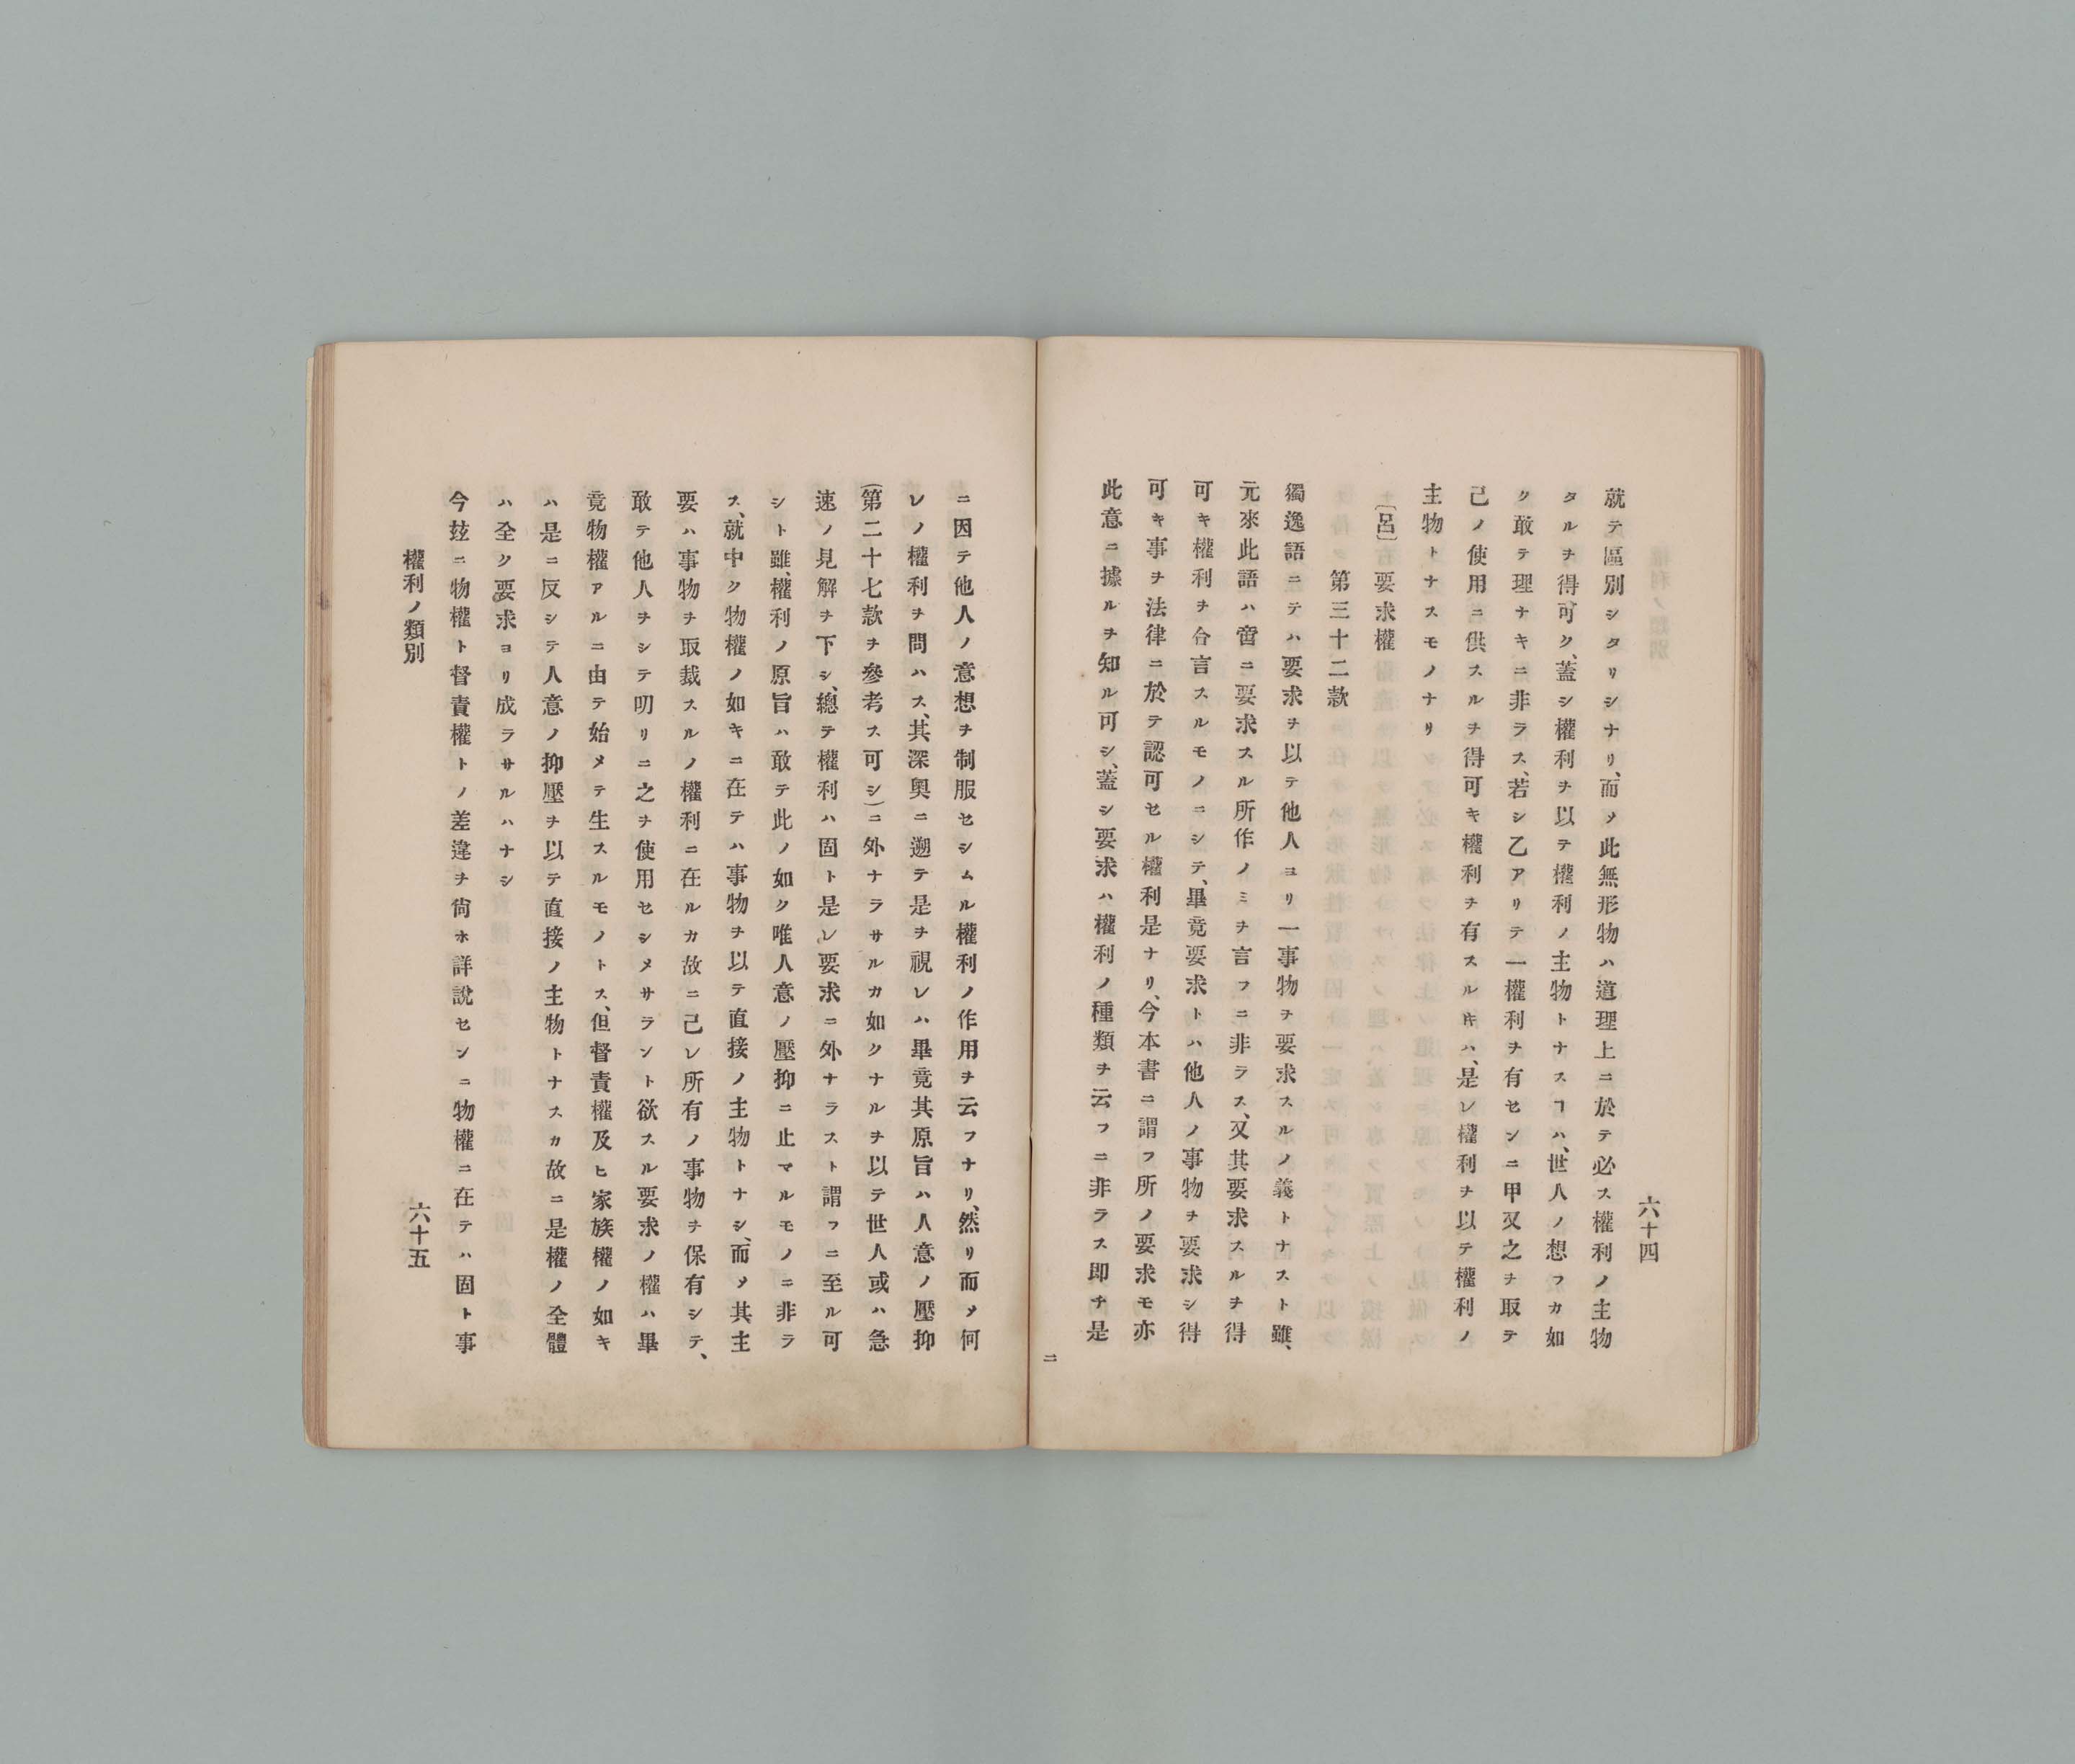 六十四
就テ區別シタリシナリ、而〆此無形物ハ道理上ニ於テ必ス權利ノ主物
タルヲ得可ク、蓋シ權利ヲ以テ權利ノ主物トナスヿハ、世人ノ想フカ如
ク敢テ理ナキニ非ラス、若シ乙アリテ一權利ヲ有センニ甲又之ヲ取テ
己ノ使用ニ供スルヲ得可キ權利ヲ有スルキハ、是レ權利ヲ以テ權利ノ
主物トナスモノナリ
〔呂〕要求權
第三十二款
獨逸語ニテハ要求ヲ以テ他人ヨリ一事物ヲ要求スルノ義トナスト雖、
元來此語ハ啻ニ要求スル所作ノミヲ言フニ非ラス、又其要求スルヲ得
可キ權利ヲ合言スルモノニシテ、畢竟要求トハ他人ノ事物ヲ要求シ得
可キ事ヲ法律ニ於テ認可セル權利是ナリ、今本書ニ謂フ所ノ要求モ亦
此意ニ據ルヲ知ル可シ、蓋シ要求ハ權利ノ種類ヲ云フニ非ラス即チ是
ニ
ニ因テ他人ノ意想ヲ制服セシムル權利ノ作用ヲ云フナリ、然リ而〆何
レノ權利ヲ問ハス、其深奧ニ遡テ是ヲ視レハ畢竟其原旨ハ人意ノ壓抑
(第二十七款ヲ參考ス可シ)ニ外ナラサルカ如クナルヲ以テ世人或ハ急
速ノ見解ヲ下シ、總テ權利ハ固ト是レ要求ニ外ナラスト謂フニ至ル可
シト雖、權利ノ原旨ハ敢テ此ノ如ク唯人意ノ壓抑ニ止マルモノニ非ラ
ス、就中ク物權ノ如キニ在テハ事物ヲ以テ直接ノ主物トナシ、而〆其主
要ハ事物ヲ取裁スルノ權利ニ在ルカ故ニ己レ所有ノ事物ヲ保有シテ、
敢テ他人ヲシテ叨リニ之ヲ使用セシメサラント欲スル要求ノ權ハ畢
竟物權アルニ由テ始メテ生スルモノトス、但督責權及ヒ家族權ノ如キ
ハ是ニ反シテ人意ノ抑壓ヲ以テ直接ノ主物トナスカ故ニ是權ノ全體
ハ全ク要求ヨリ成ラサルハナシ
今玆ニ物權ト督責權トノ差違ヲ尙ホ詳說センニ物權ニ在テハ固ト事
權利ノ類別
六十五